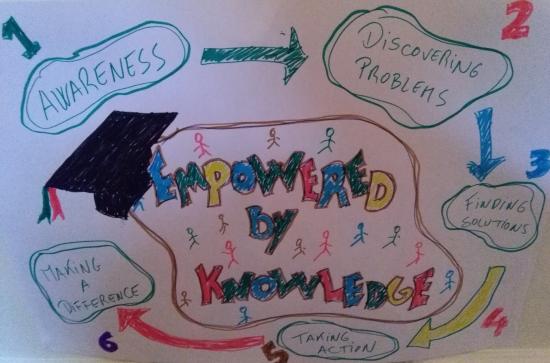 1
AWARENESS
2
DISCOVERING
PROBLEMS
3
FINDING
SOLUTIONS
4
5
TAKING
ACTION
6
MAKING
A
DIFFERENCE
EMPOWERED
By
KNOWLEDGE